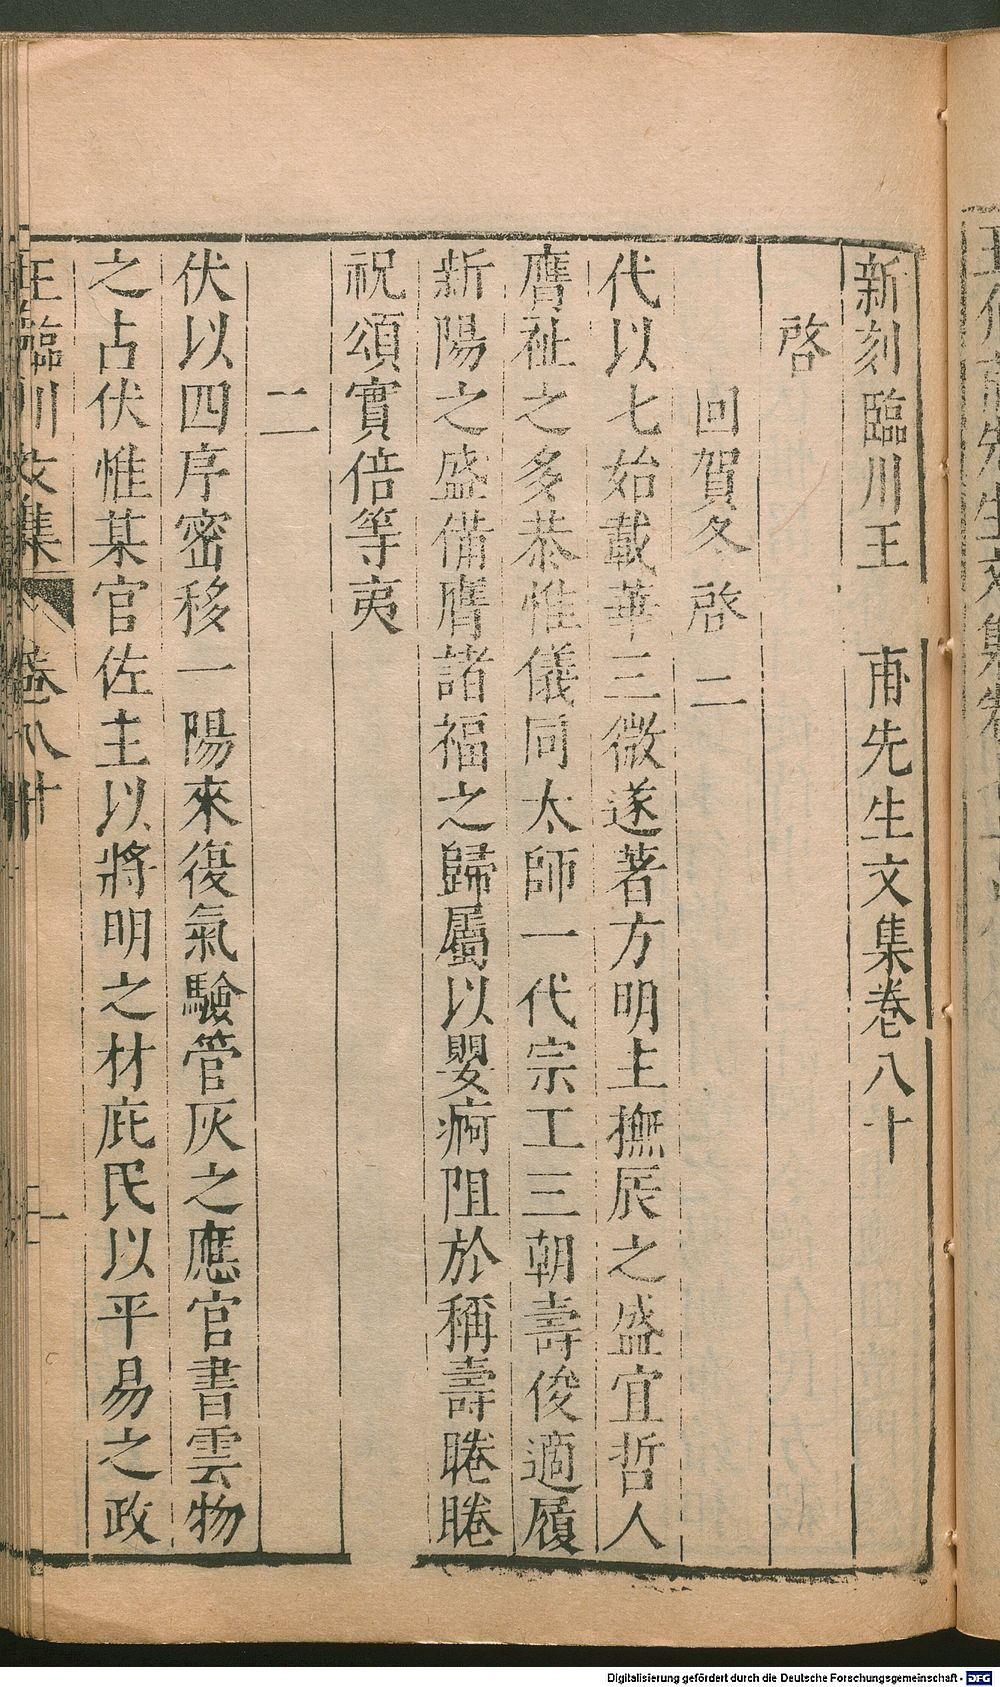 新刻臨川王 甫先生文集卷八十
啓
回賀冬啓 二
代以七始載華三微遂著方明主撫辰之盛宜哲人
膺祉之多恭惟儀同太師一代宗工三朝壽俊適履
新陽之盛備膺諸福之歸屬以嬰痾阻於稱壽睠睠
祝頌實倍等夷
二
伏以四序密移一陽來復氣驗管灰之應官書雲物
之占伏惟某官佐主以將明之材庇民以平易之政
王臨川文集 卷八十 一
Digitalisierung gefördert durch die Deutsche Forschungsgemeinschaft - DFG